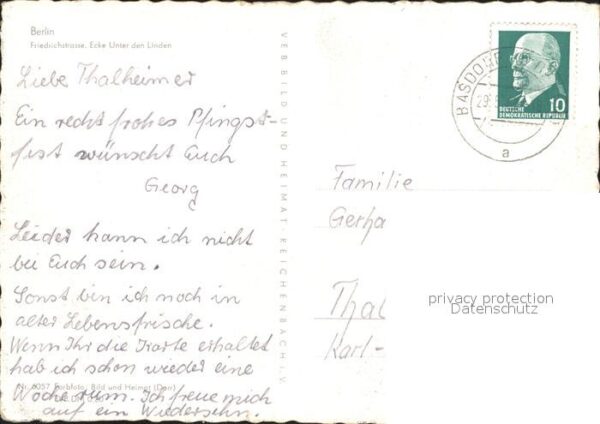 Berlin
Friedrichstrasse, Ecke Unter den Linden
Liebe Thalheimer
Ein recht frohes Pfingst-
fest wünscht Euch
Georg
Leider kann ich nicht
bei Euch sein.
Sonst bin ich noch in
alter Lebensfrische.
Wenn Ihr die Karte erhaltet
hab ich schon wieder eine
Woche rum. Ich freue mich
auf ein Wiedersehn.
Farbfoto: Bild und Heimat (Darr)
VEB BILD UND HEIMAT · REICHENBACH i. V.
BASDORF
29
a
10
DEUTSCHE
DEMOKRATISCHE REPUBLIK
Familie
Gerha
Thal
Karl-
privacy protection
Datenschutz